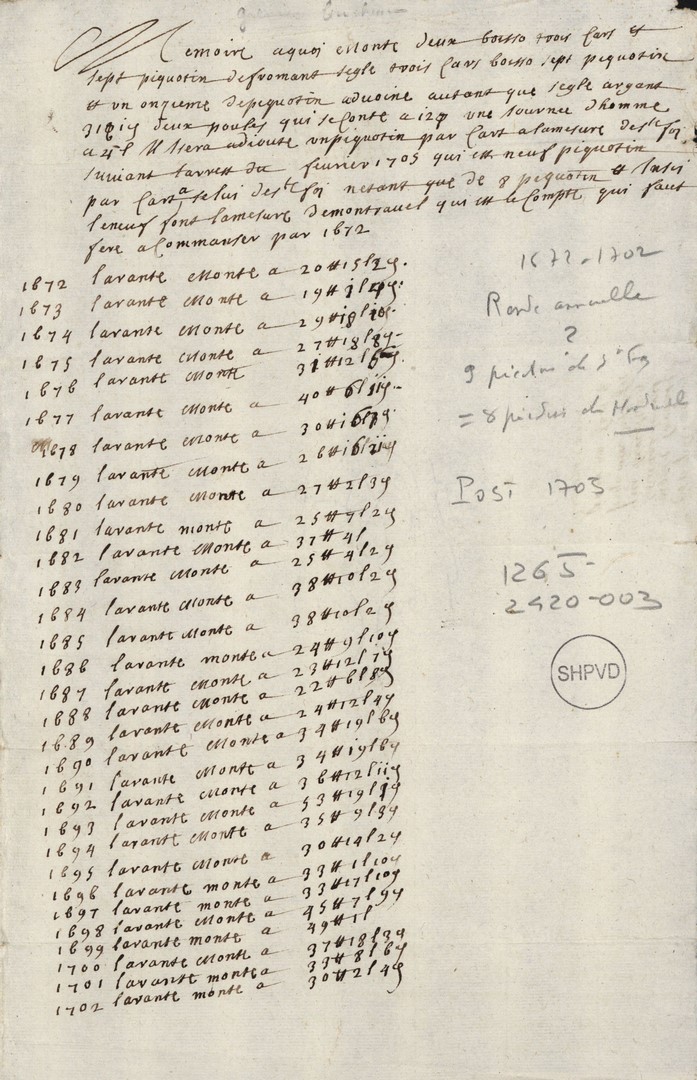 Memoire aquoi Monte deux boisso trois Cars et
sept piquotin defromant segle trois Cars boisso sept piquotin
et un onzieme depiquotin advoine autant que segle argant
deux poules qui seconte a une Journee dhomme
a Il sera adioute un piquotin par Cart alamesure de
suivant larrest du fevrier 1705 qui est neuf piquotin
par Cart a selui de foi netant que de 8 pequotin et Insi
leneuf font lamesure demontravel qui est le Compte qui faut
fere a Commanser par 1672
1672 larante Monte a 20# 15l 2ς
1673 larante Monte a 19#
1674 larante Monte a 29# 18l
1675 larante Monte a 27# 18l 8ς
1676 larante Monte 31# 12l
1677 larante Monte a 40# 6l
1678 larante Monte a 30# 16l
1679 larante Monte a 26# 16l
1680 larante Monte a 27# 2l 3ς
1681 larante monte a 25# 9l 2ς
1682 larante Monte a 37# 4l
1683 larante Monte a 25# 4l 2ς
1684 larante Monte a 38# 10l 2ς
1685 larante Monte a 38# 10l 2ς
1686 larante monte a 24# 9l 10ς
1687 larante Monte a 23# 12l
1688 larante Monte a 22# 6l 8ς
1689 larante Monte a 24# 12l 4ς
1690 larante Monte a 34# 19l 6ς
1691 larante Monte a 34# 19l 6ς
1692 larante Monte a 36# 12l 11ς
1693 larante Monte a 53# 19l
1694 larante Monte a 35# 9l 3ς
1695 larante Monte a 30# 14l 2ς
1696 larante monte a 33# 1l 10ς
1697 larante monte a 33# 17l 10ς
1698 larante Monte a 45# 7l 9ς
1699 larante monte a 49# 1l
1700 larante Monte a 37# 18l 3ς
1701 larante monte a 33# 8l 6ς
1702 larante monte a 30# 2l 4ς
1672-1702
Rente annuelle
?
9 picotins de
= 8 picotins de
Post 1705
1265
2420-003
SHPVD